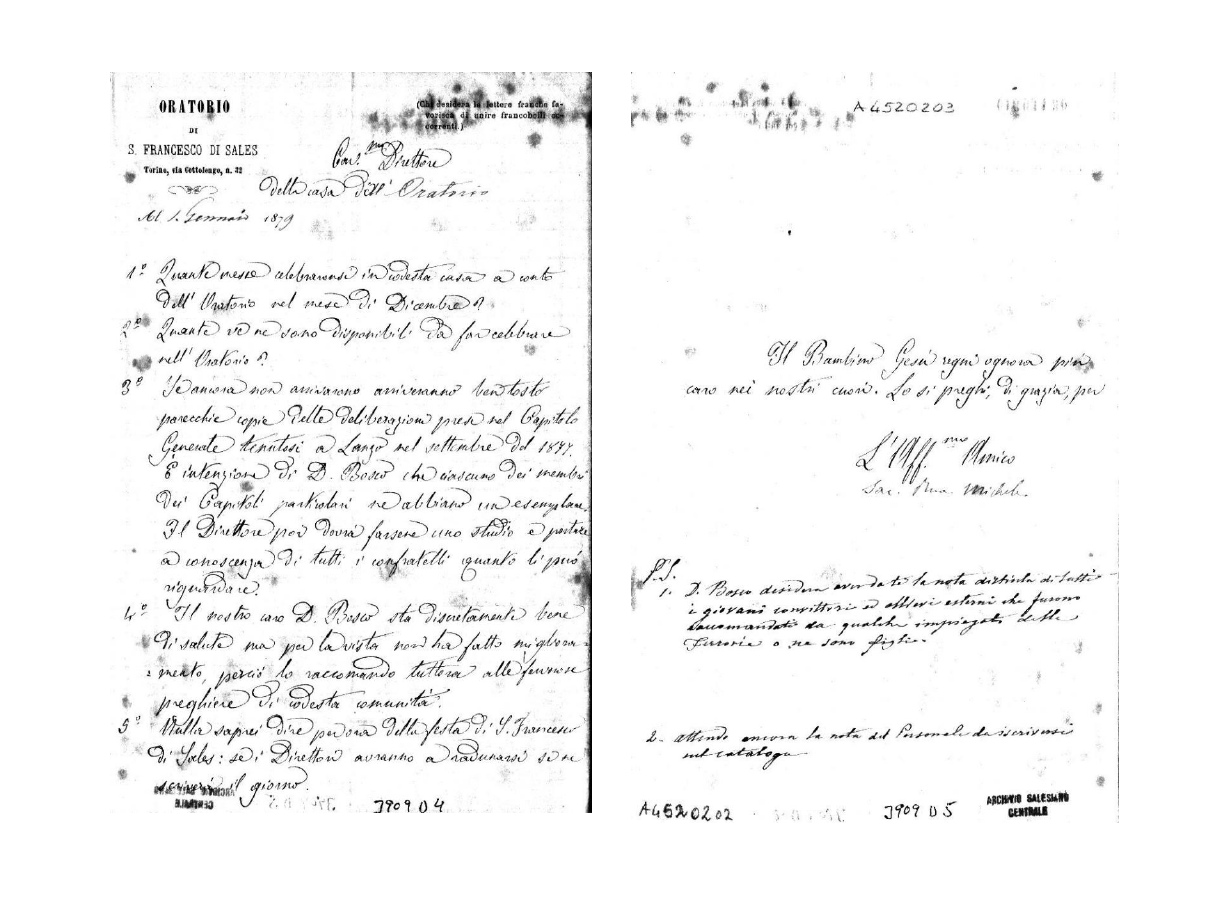 ORATORIO
DI
S. FRANCESCO DI SALES
Torino, via Cottolengo, n. 32
(Chi desidera le lettere franche fa-
vorisca di unire francobolli oc-
correnti.)
Car.mo Direttore
della casa dell' Oratorio
Al 1. Gennaio 1879
1° Quante messe celebraronsi in codesta casa a conto
dell' Oratorio nel mese di Dicembre?
2° Quante ve ne sono disponibili da far celebrare
nell' Oratorio?
3° Se ancora non arrivarono arriveranno ben tosto
parecchie copie delle deliberazioni prese nel Capitolo
Generale tenutosi a Lanzo nel settembre del 1877.
È intenzione di D. Bosco che ciascuno dei membri
dei Capitoli particolari ne abbiano un esemplare.
Il Direttore poi dovrà farsene uno studio e portare
a conoscenza di tutti i confratelli quanto li può
riguardare.
4° Il nostro caro D. Bosco sta discretamente bene
di salute ma per la vista non ha fatto migliora-
=mento, perciò lo raccomando tuttora alle fervorose
preghiere di codesta comunità.
5° Nulla saprei dire per ora della festa di S. Francesco
di Sales: se i Direttori avranno a radunarsi se ne
scriverà il giorno.
ARCHIVIO SALESIANO
CENTRALE
3909 D4
A4520203
Il Bambino Gesù regni ognora più
caro nei nostri cuori. Lo si preghi, di grazia, per
L'Aff.mo Amico
Sac. Rua Michele
P.S.
1. D. Bosco desidera aver da te la nota distinta di tutti
i giovani convittori ed allievi esterni che furono
raccomandati da qualche impiegato delle
Ferrovie o ne sono figli.
2. Attendo ancora la nota del Personale da iscriversi
sul catalogo
A4520202
3909 D5
ARCHIVIO SALESIANO
CENTRALE